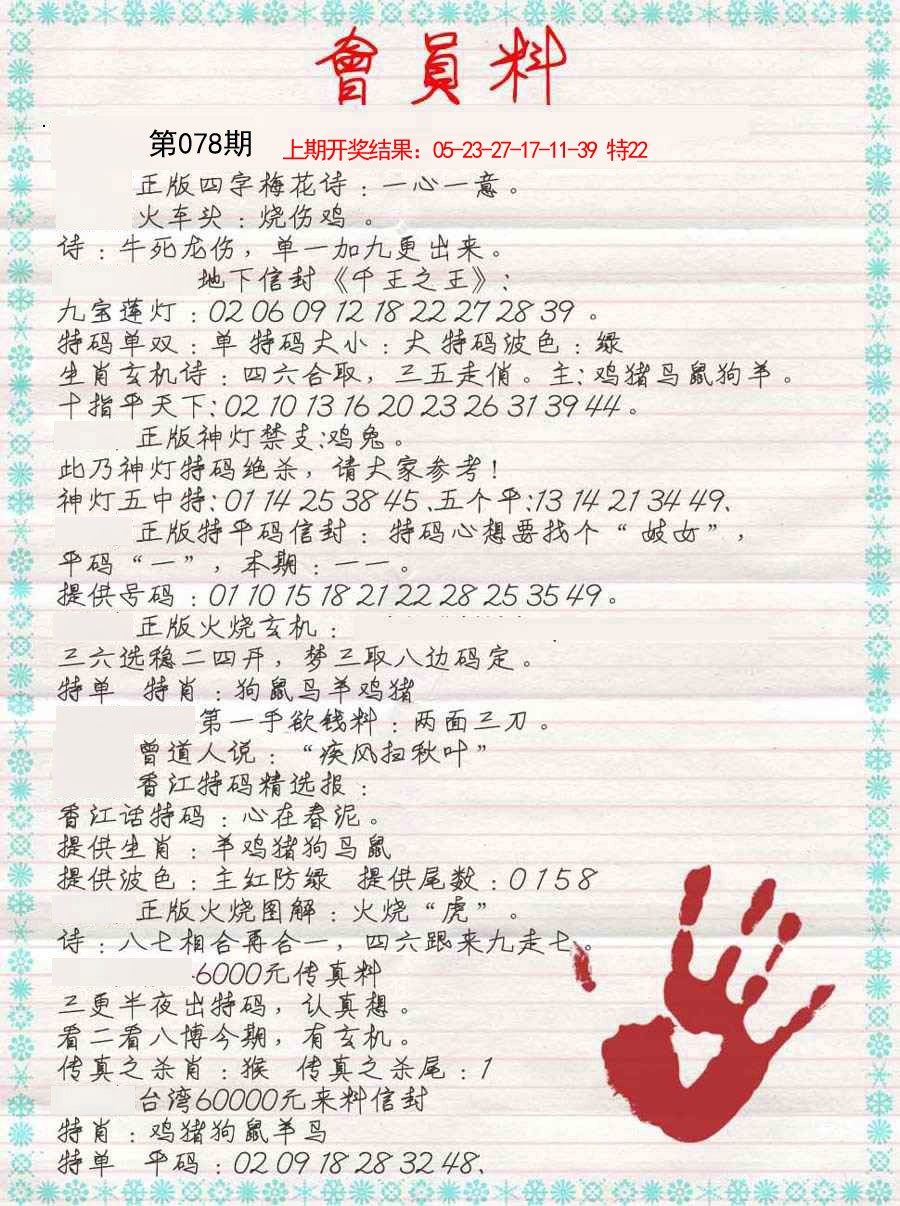 會員料
第078期 上期开奖结果：05-23-27-17-11-39 特22
正版四字梅花诗：一心一意。
火车头：烧伤鸡。
诗：牛死龙伤，单一加九更出来。
地下信封《千王之王》：
九宝莲灯：02 06 09 12 18 22 27 28 39 。
特码单双：单 特码大小：大 特码波色：绿
生肖玄机诗：四六合取，三五走俏。主：鸡猪马鼠狗羊。
十指平天下：02 10 13 16 20 23 26 31 39 44。
正版神灯禁支：鸡兔。
此乃神灯特码绝杀，请大家参考！
神灯五中特：01 14 25 38 45、五个平：13 14 21 34 49、
正版特平码信封：特码心想要找个“妓女”，
平码“一”，本期：一一。
提供号码：01 10 15 18 21 22 28 25 35 49。
正版火烧玄机：
三六选稳二四开，梦三取八边码定。
特单 特肖：狗鼠马羊鸡猪
第一手欲钱料：两面三刀。
曾道人说：“疾风扫秋叶”
香江特码精选报：
香江话特码：心在春泥。
提供生肖：羊鸡猪狗马鼠
提供波色：主红防绿 提供尾数：0 1 5 8
正版火烧图解：火烧“虎”。
诗：八七相合再合一，四六跟来九走七。
6000元传真料
三更半夜出特码，认真想。
看二看八博今期，有玄机。
传真之杀肖：猴 传真之杀尾：1
台湾60000元来料信封
特肖：鸡猪狗鼠羊马
特单 平码：02 09 18 28 32 48、